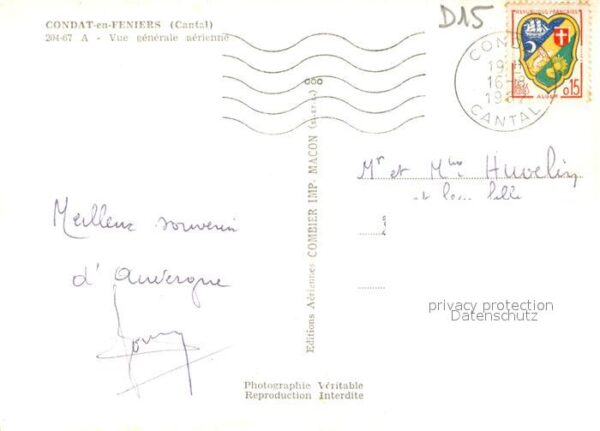 CONDAT-en-FENIERS (Cantal)
204-67 A - Vue générale aérienne
D15
REPUBLIQUE FRANÇAISE
0,15
ALGER
CANTAL
Mr et Mme Huvelin
et leur fille
Meilleur souvenir
d'Auvergne
Editions Aériennes COMBIER IMP. MACON
privacy protection
Datenschutz
Photographie Véritable
Reproduction Interdite